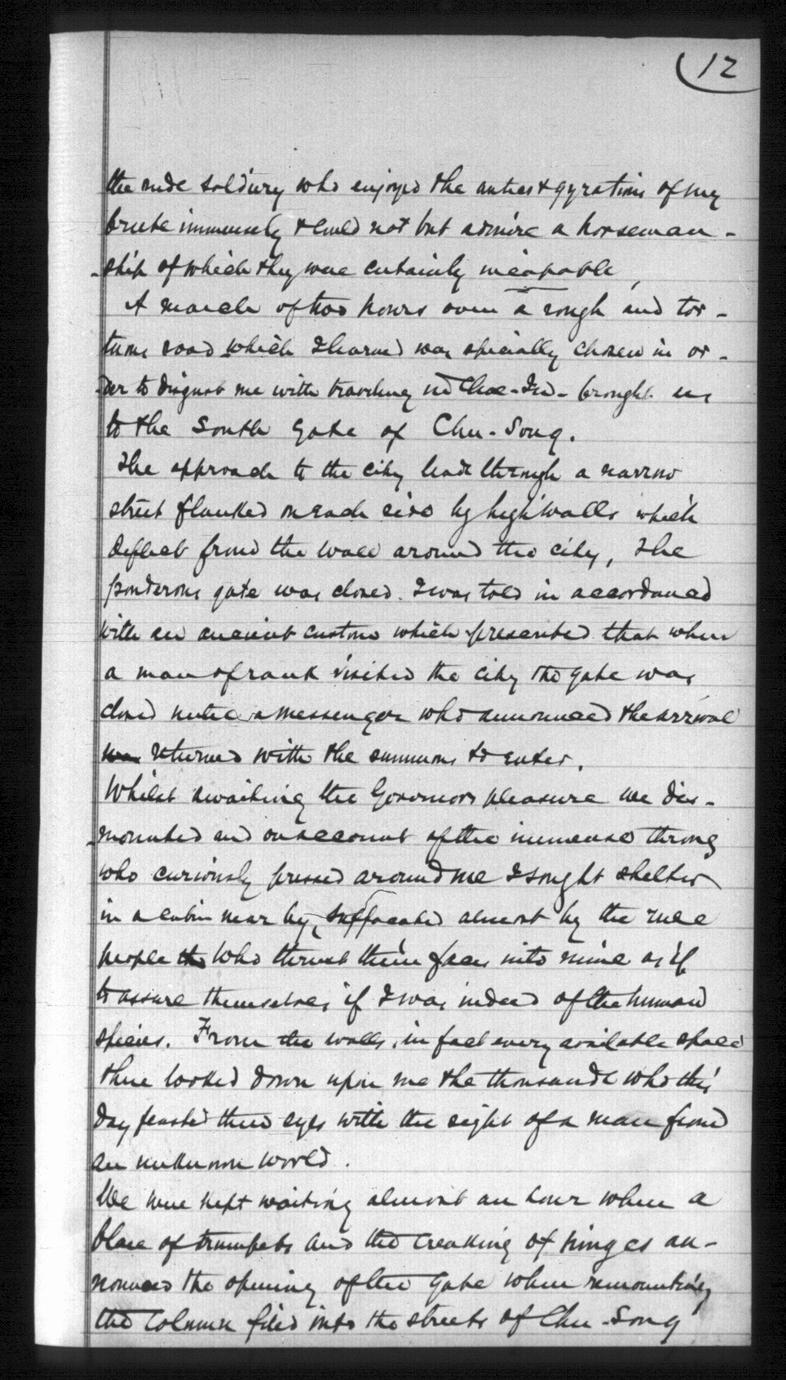 (12
the rude soldiery who enjoyed the antics & gyrations of my
brute immensely & could not but admire a horseman-
-ship of which they were certainly incapable,
A march of two hours over a rough and tor-
tuous road which I learned was specially chosen in or-
-der to disgust me with traveling in Choe-Ju- brought us
to the South Gate of Chu-Song.
The approach to the city leads through a narrow
street flanked on each side by high walls which
deflect from the wall around the city, The
ponderous gate was closed. I was told in accordance
with an ancient custom which prescribed that when
a man of rank visited the city the gate was
closed until a messenger who announced the arrival
was returned with the summons to enter.
Whilst awaiting the Governors pleasure we dis-
-mounted and on account of the immense throng
who curiously pressed around me I sought shelter
in a cabin near by, suffocated almost by the rude
people th who thrust their faces into mine as if
to assure themselves if I was indeed of the human
species. From the walls, in fact every available space
there looked down upon me the thousands who this
day feasted their eyes with the sight of a man from
an unknown world.
We were kept waiting almost an hour when a
blare of trumpets and the creaking of hinges an-
nounced the opening of the Gate when remounting
the Column filed into the streets of Chu-Song